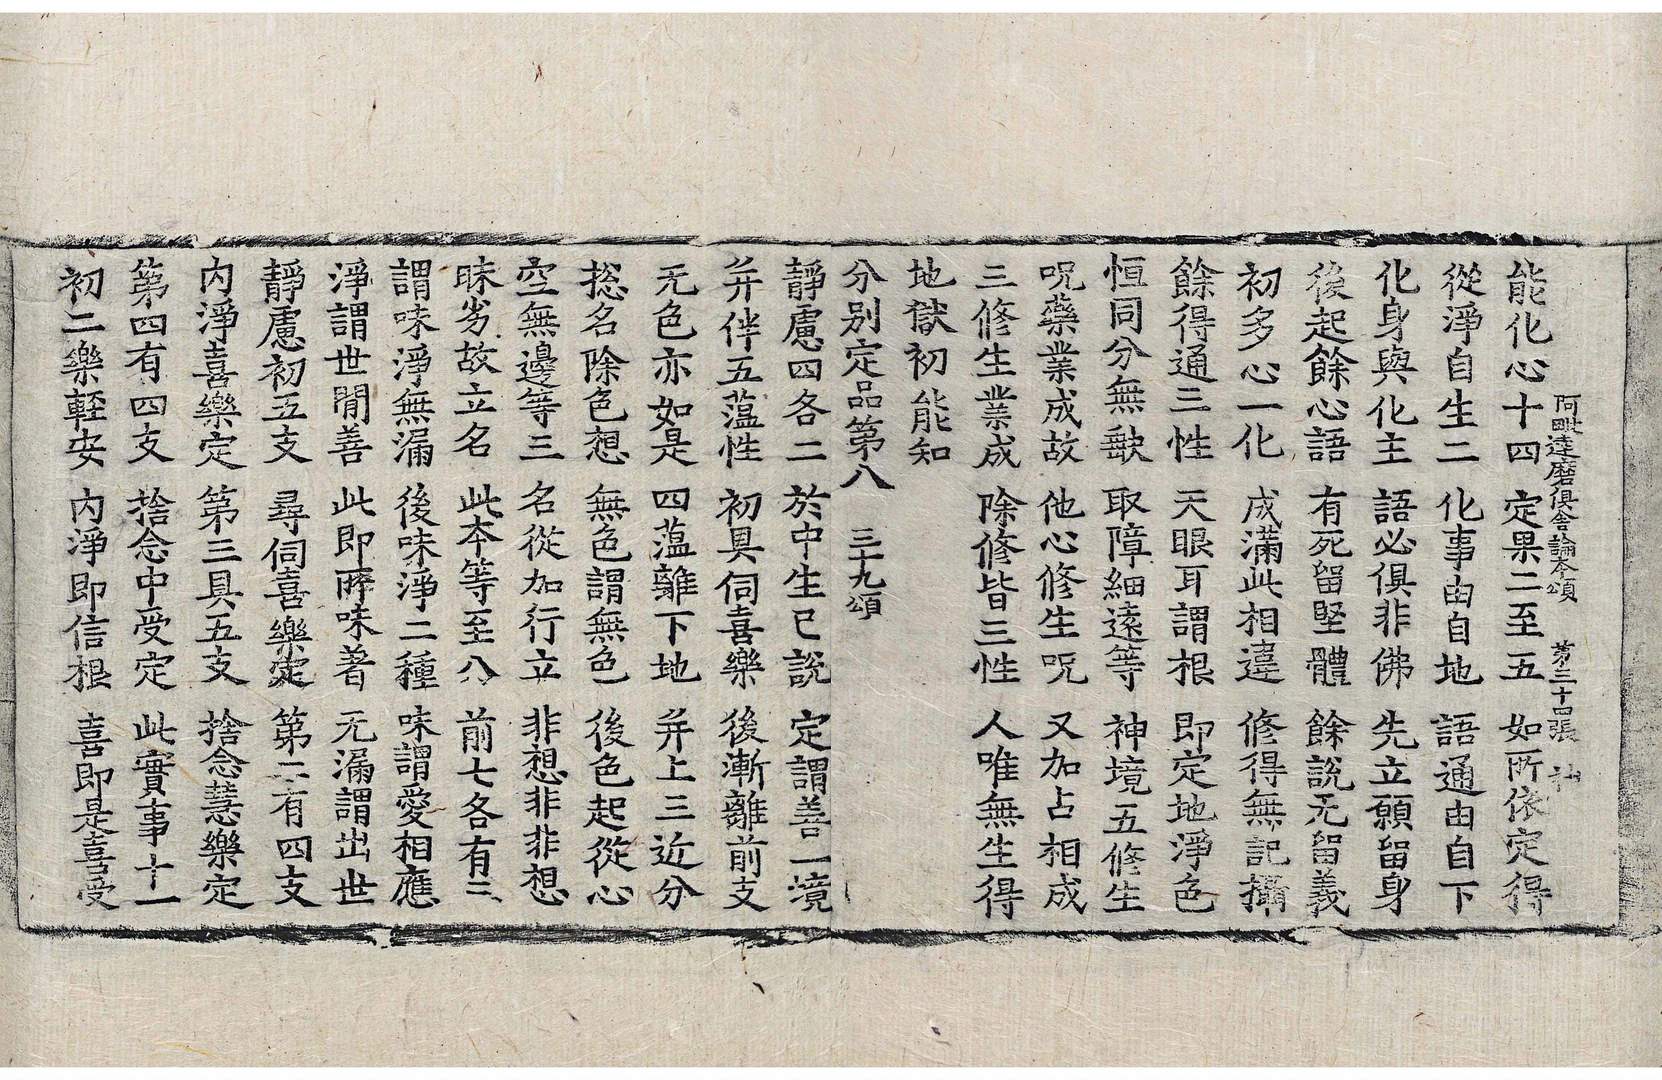 阿毗達磨俱舍論本頌 第三十四張 神
能化心十四 定果二至五 如所依定得
從淨自生二 化事由自地 語通由自下
化身與化主 語必俱非佛 先立願留身
後起餘心語 有死留堅體 餘說无留義
初多心一化 成滿此相違 修得無記攝
餘得通三性 天眼耳謂根 即定地淨色
恒同分無缺 取障細遠等 神境五修生
呪藥業成故 他心修生呪 又加占相成
三修生業成 除修皆三性 人唯無生得
地獄初能知
分別定品第八 三十九頌
靜慮四各二 於中生已說 定謂善一境
并伴五蕰性 初具伺喜樂 後漸離前支
无色亦如是 四蕰離下地 并上三近分
捴名除色想 無色謂無色 後色起從心
空無邊等三 名從加行立 非想非非想
昧劣故立名 此本等至八 前七各有三
謂味淨無漏 後味淨二種 味謂愛相應
淨謂世閒善 此即所味著 无漏謂出世
靜慮初五支 尋伺喜樂定 第二有四支
內淨喜樂定 第三具五支 捨念慧樂定
第四有四支 捨念中受定 此實事十一
初二樂輕安 內淨即信根 喜即是喜受